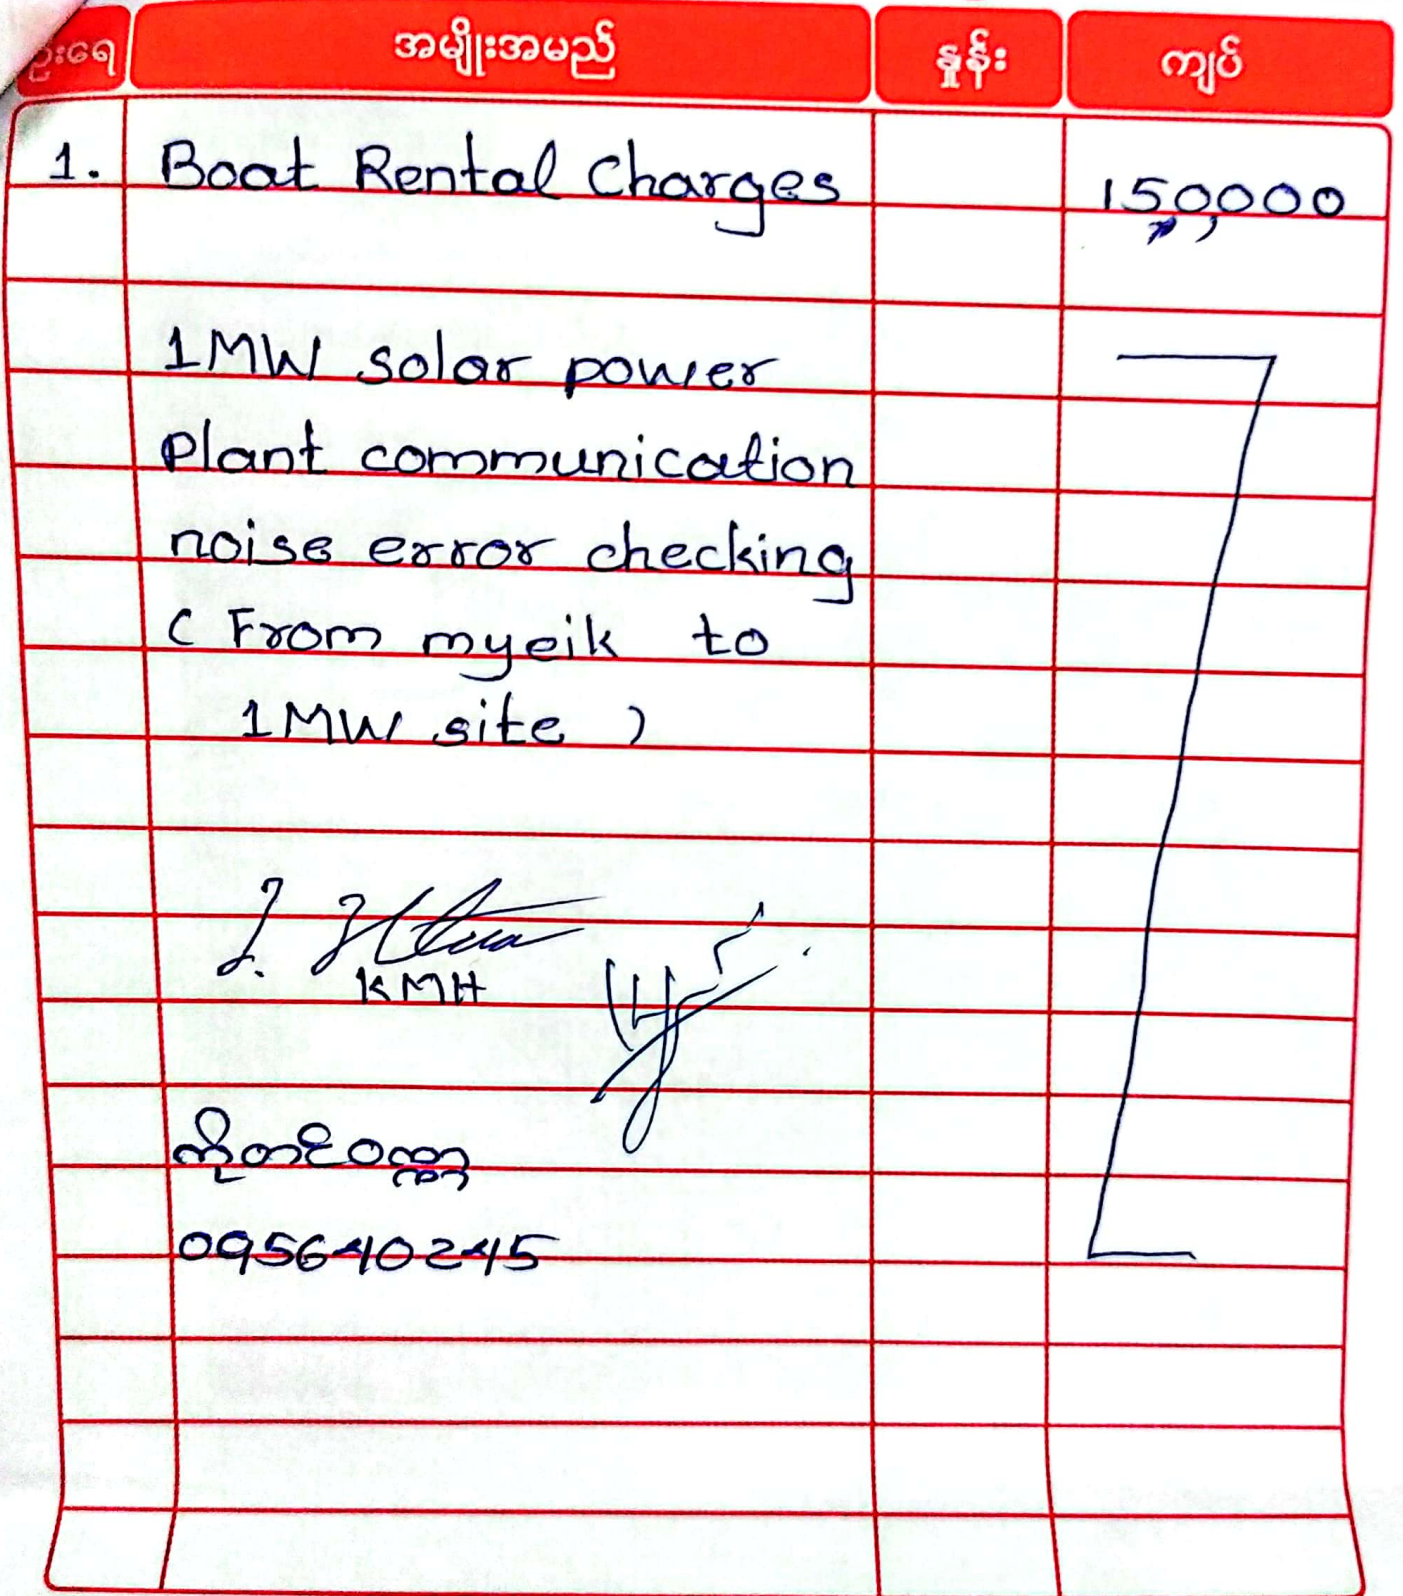 ဦးရေ အမျိုးအမည် နှုန်း ကျပ်
1. Boat Rental Charges 150,000
1MW solar power
Plant communication
noise error checking
( From myeik to
1MW site )
KMH
0956410245